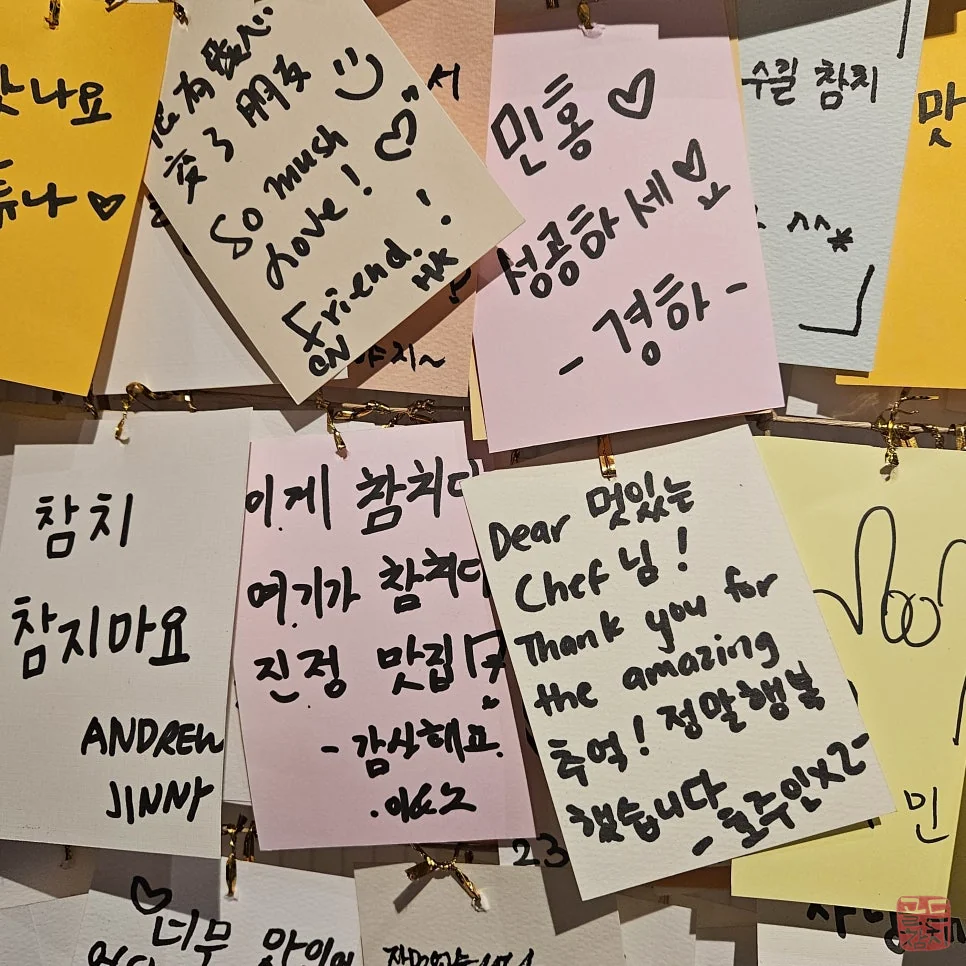 나요
튜나♡
有愛心
变了朋友
So mush
Love!
Friend!
HK
CN
서
지~
민홍♡
성공하세요
- 경하 -
수길 참치
^^*
맛
참치
참지마요
ANDREW
JINNY
이게 참치다
여기가 참치다
진정 맛집
- 감사해요.
Dear 멋있는
Chef님!
Thank you for
the amazing
추억! 정말행복
했습니다
- 호주인x2-
민
23
너무 맛있